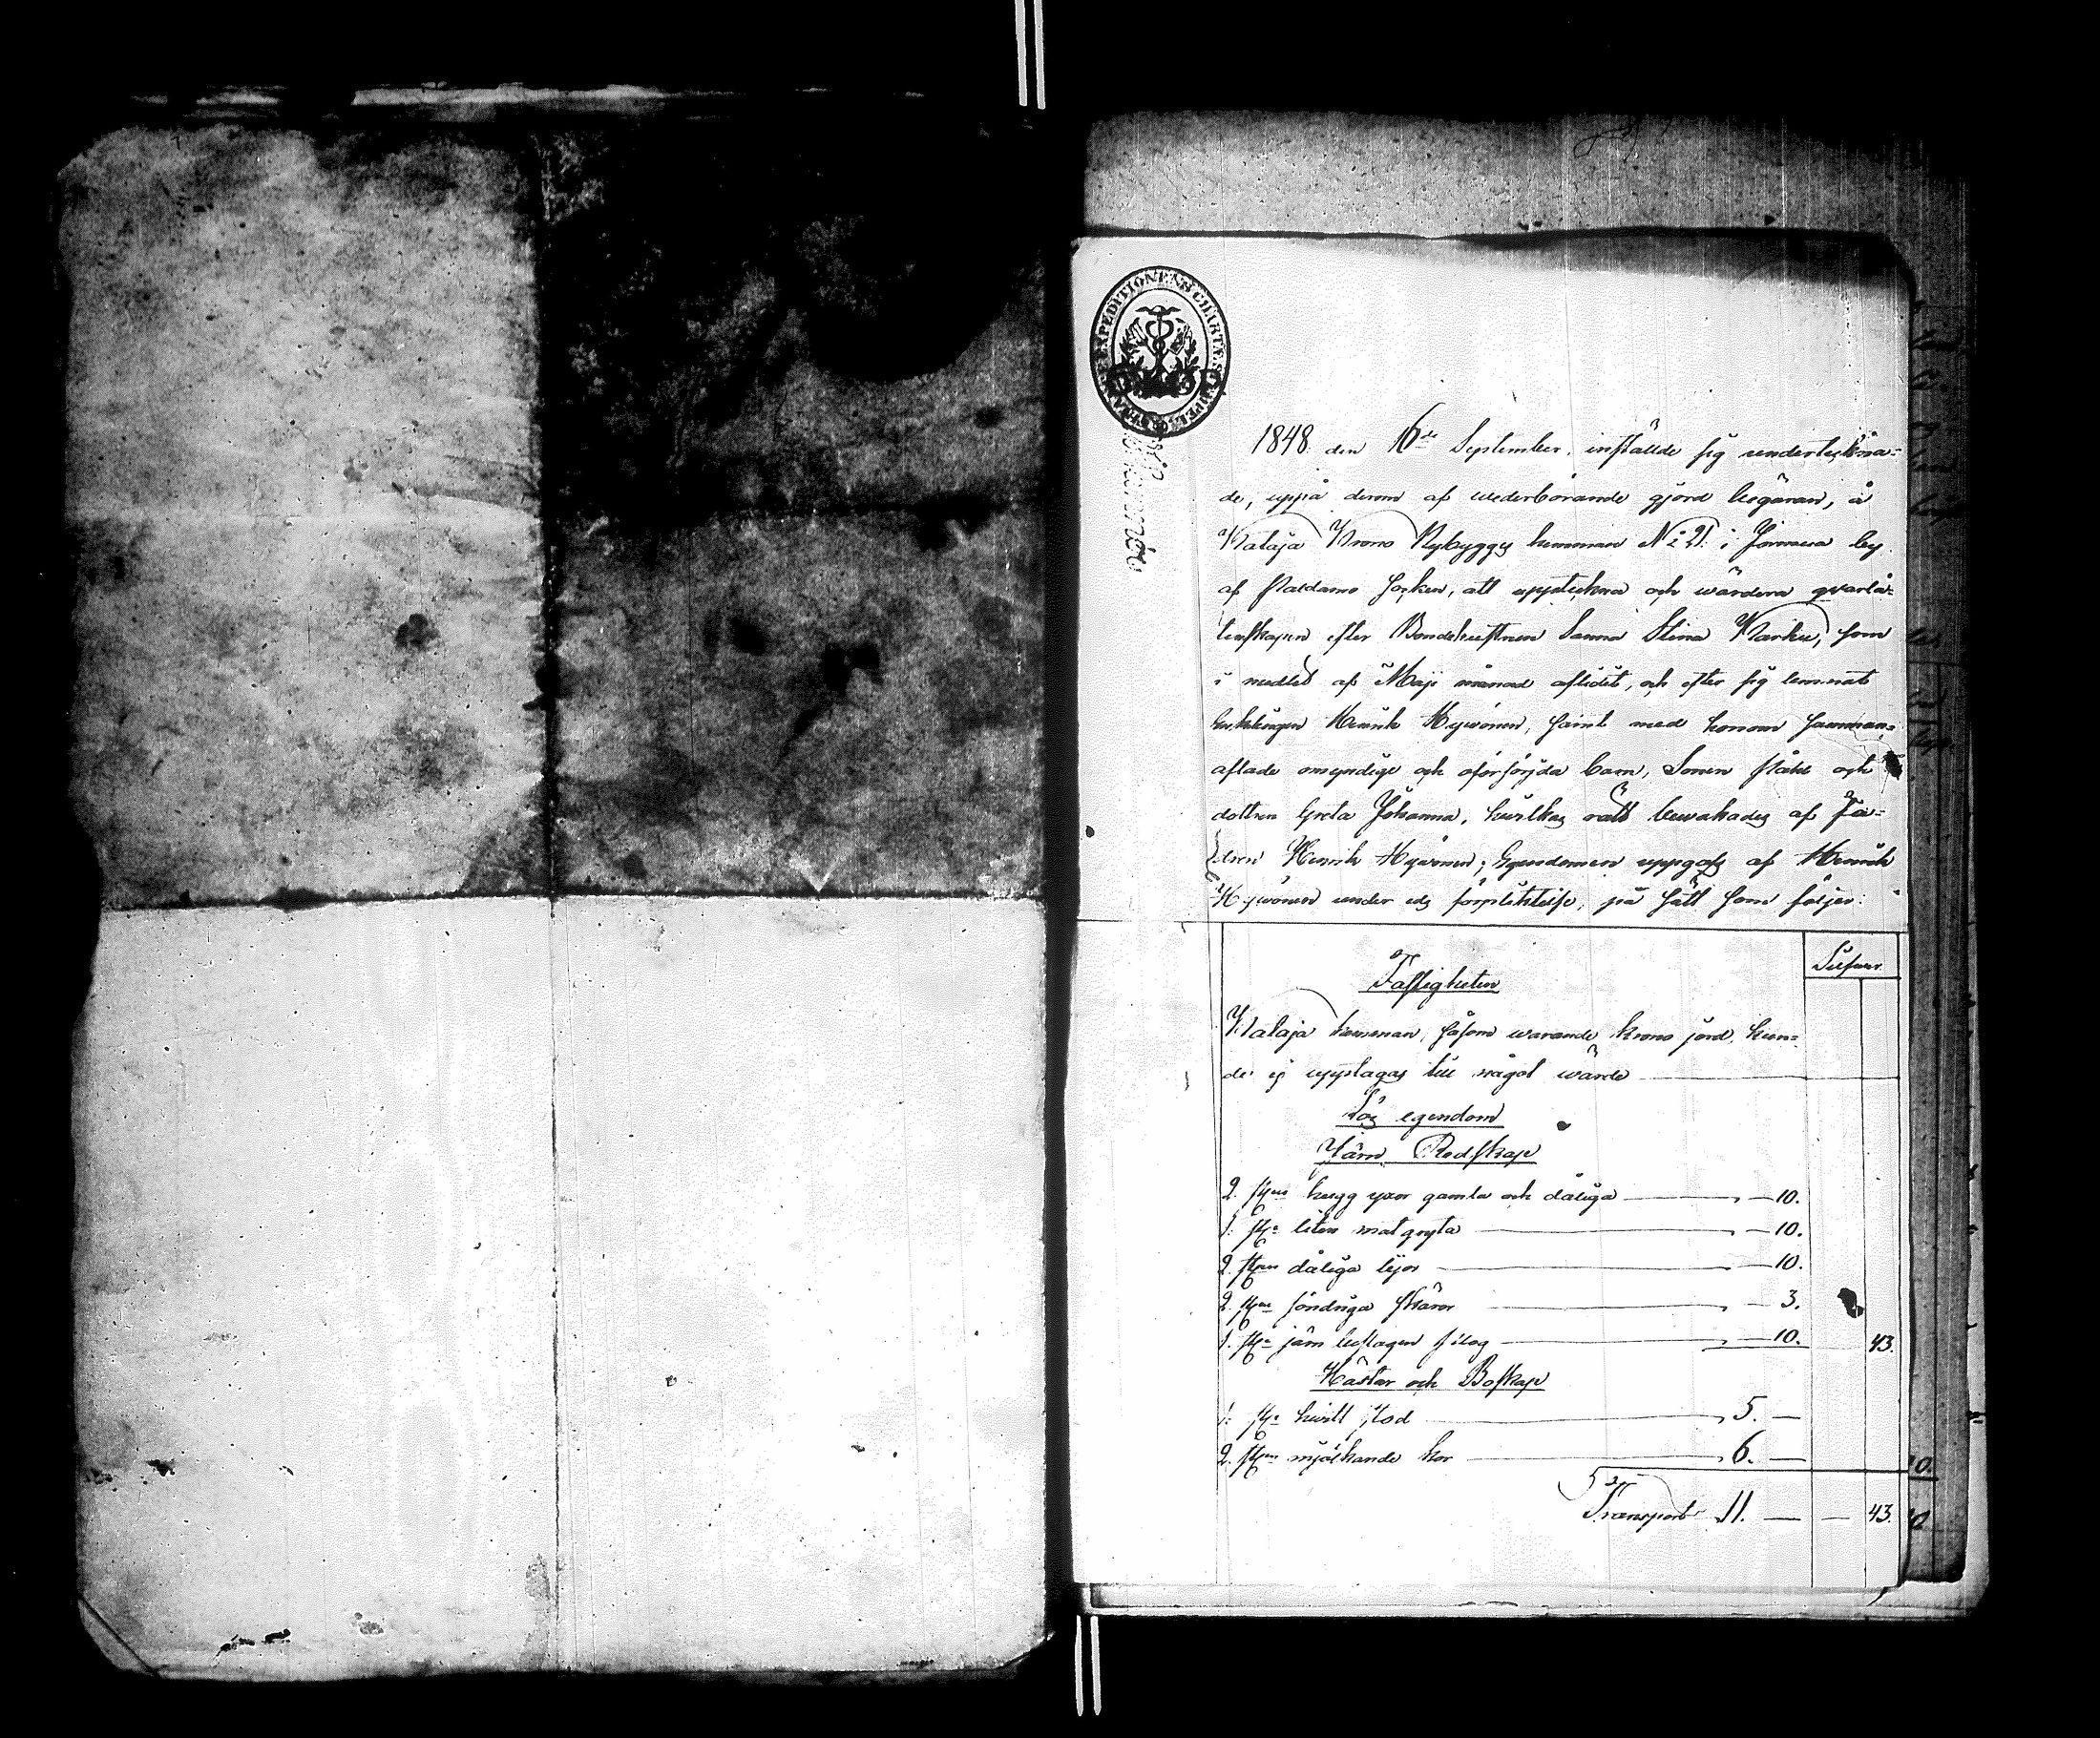 1848 den 16de September inställde sig underteckna-
de, uppå derom af wederbörande gjord begäran, å
Kataja Krono Nybygges hemman No 21 i Jormua by
af Paldamo Socken, att uppteckna och wärdera qvarlå-
tenskapen efter Bondehustrun Sanna Stina Karhu, som
i medlet af Maji månad aflidit, och efter sig lemnat
Enklingen Henrik Hywönen, samt med honom samman-
aflade omyndige och oförsörjda barn, Sonen Påhl och
dottren Greta Johanna, hwilkas rätt bewakades af Fa-
dren Henrik Hywönen; Egendomen uppgafs af Henrik
Hywönen under eds förpliktelse, på sätt som följer:
Silfwer
Fastigheten
Kataja hemman, såsom warande krono jord, kun-
de ej upptagas till något wärde
Lös egendom
Järn Redskap
2 stycken hugg yxor gamla och dåliga — 10.
1 st. liten matgryta — 10.
2 stycken dåliga lijor — 10.
2 stycken söndriga skäror — 3.
1 st. järn beslagen plog — 10. 43.
Hästar och Boskap
1 st. hwitt stod 5. —
2 stycken mjölkande kor 6. —
Transport 11. — — 43.